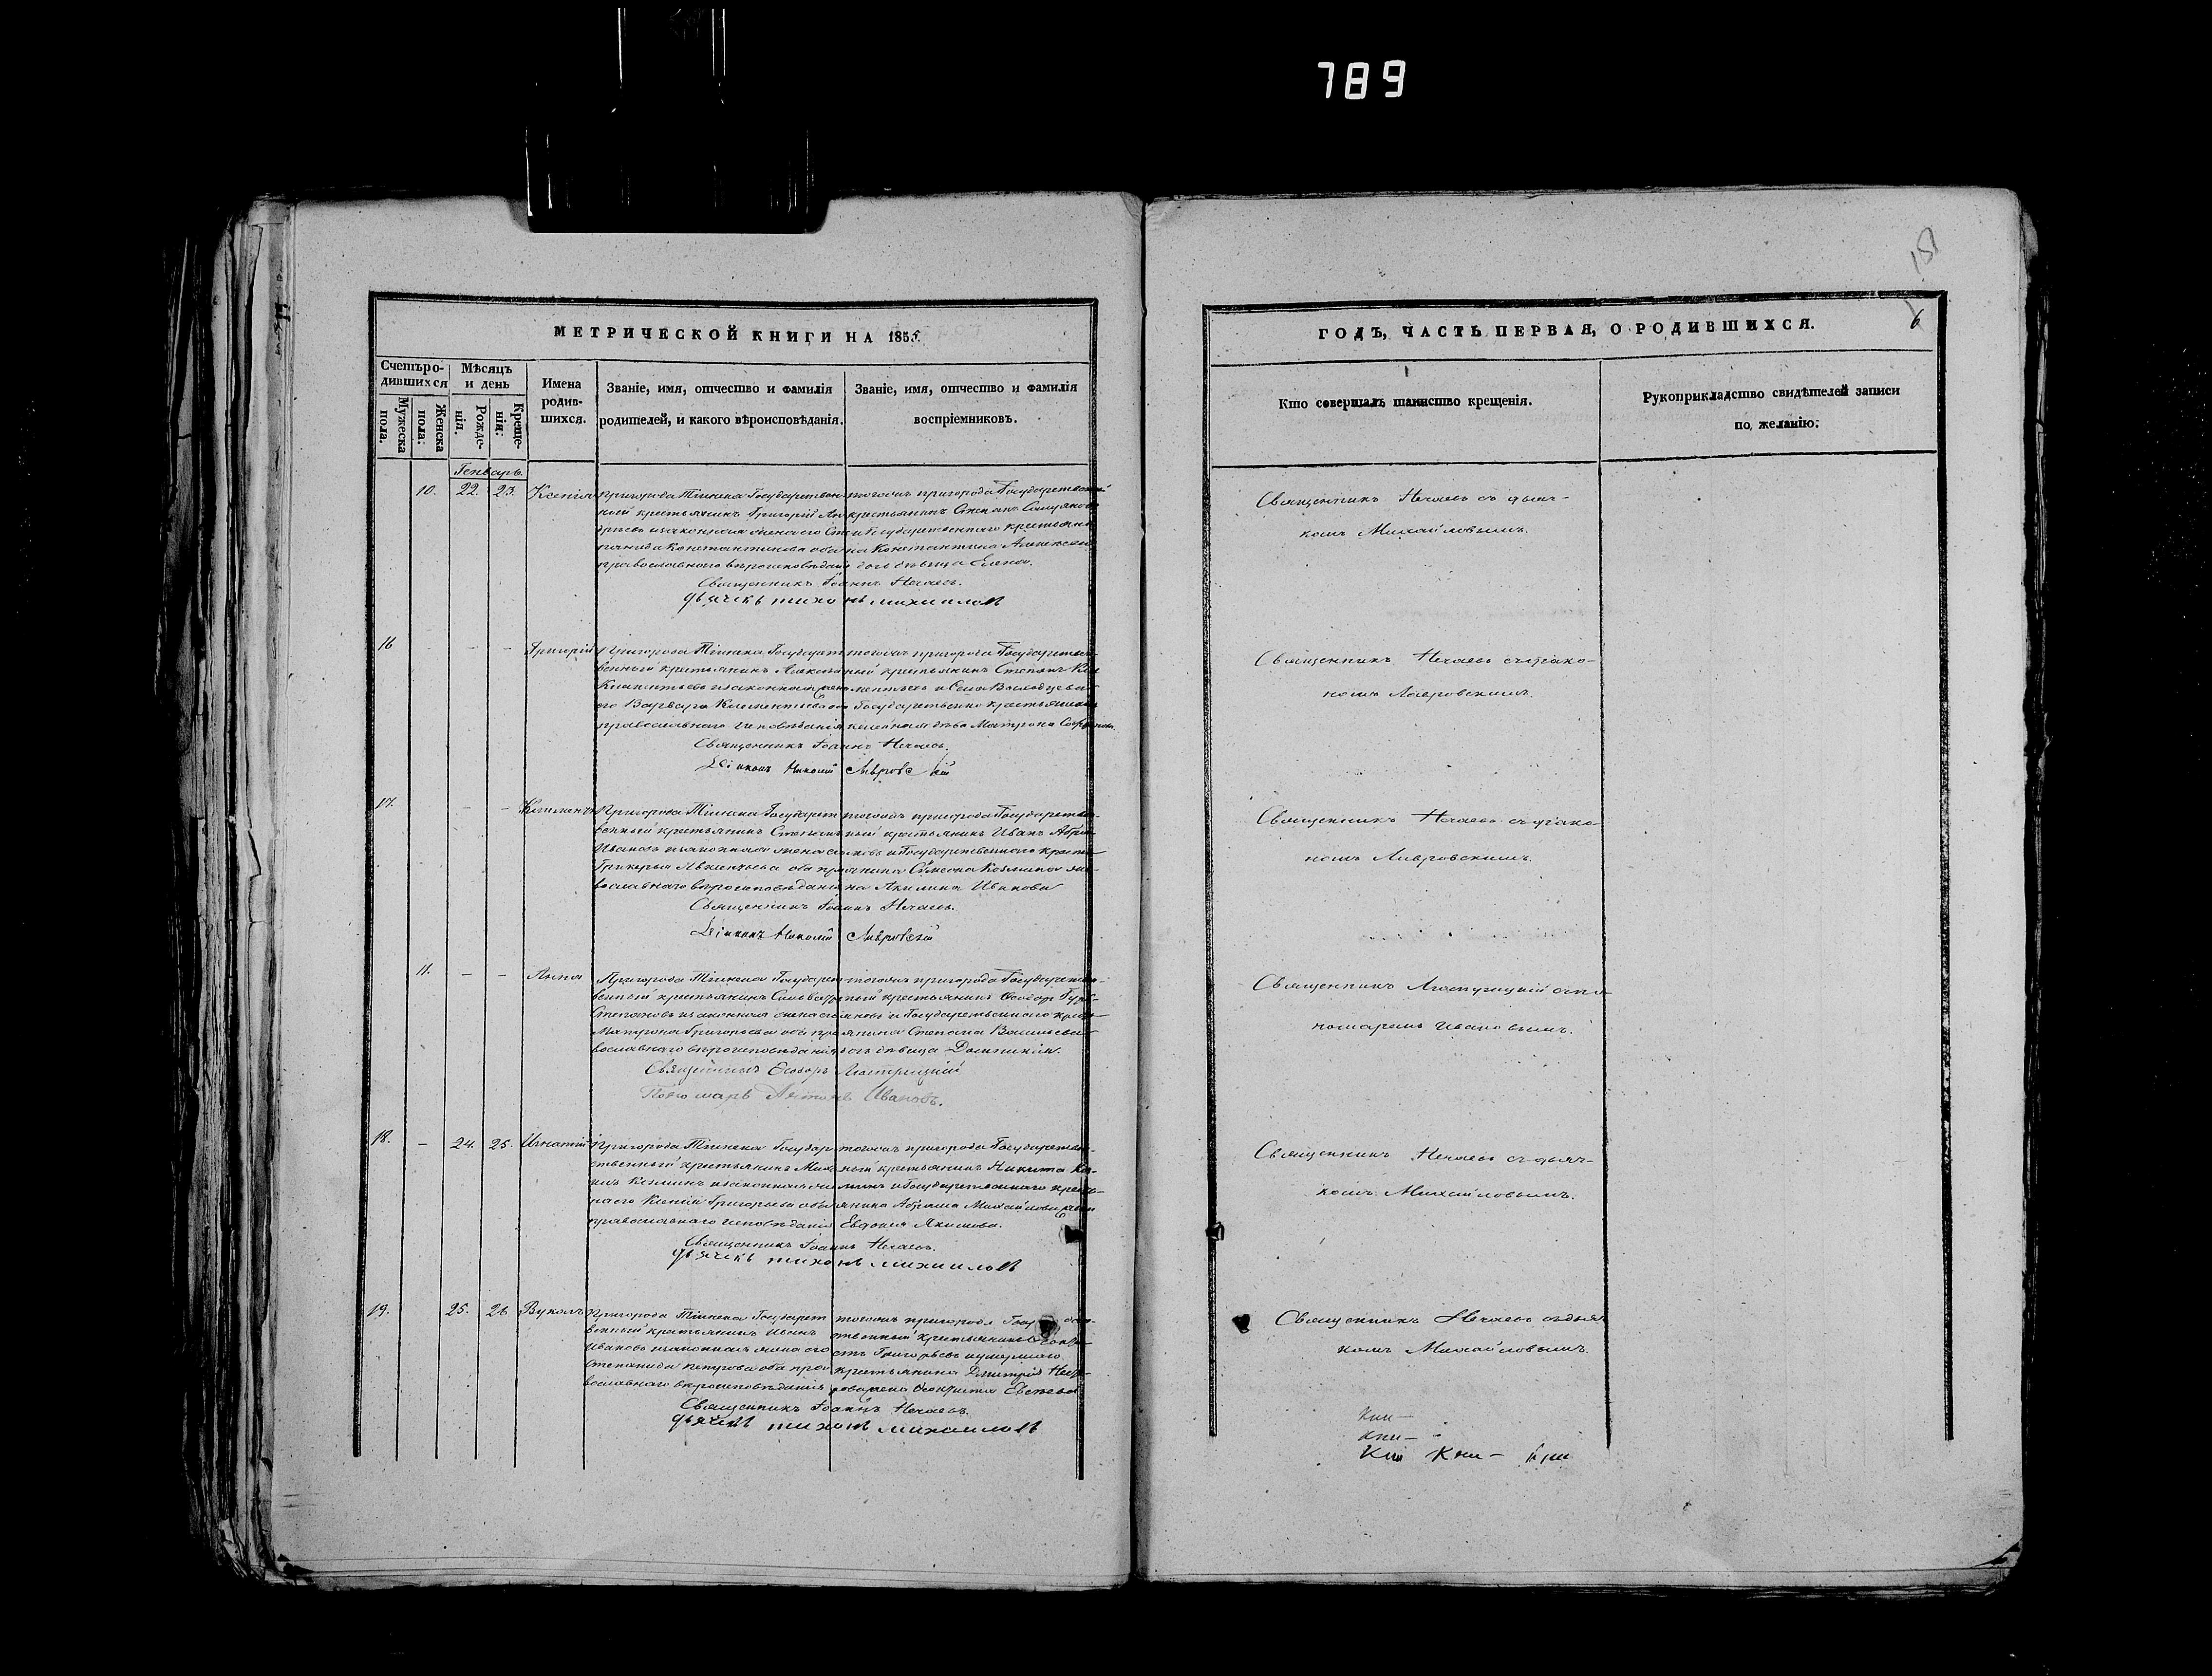 789
151
МЕТРИЧЕСКОЙ КНИГИ НА 1855
ГОДЪ, ЧАСТЬ ПЕРВАЯ, О РОДИВШИХСЯ.
6
Счетъ ро-
дившихся
Мужеска
пола.
Женска
пола:
Мѣсяцъ
и день
Рожде-
нія.
Креще-
нія:
Имена
родив-
шихся.
Званіе, имя, отчество и фамилія
родителей, и какого вѣроисповѣданія.
Званіе, имя, отчество и фамилія
воспріемниковъ.
Кто совершалъ таинство крещенія.
Рукоприкладство свидѣтелей записи
по желанію:
Генварь.
10.
22.
23.
Ксенія
Пригорода Тіинска Государствен
ной крестьянинъ Григорій Ан
дреевъ и законная жена его Сте
панида Константинова оба
православнаго вѣроисповѣданія
тогожъ пригорода Государственный
крестьянинъ Степанъ
и Государственнаго крестьяни
на Константина Алексѣева
дочь дѣвица Елена.
Священникъ Іоаннъ Нечаевъ.
дьячекъ тихонъ михаиловъ
Священникъ Нечаевъ съ дьяч-
комъ Михайловымъ.
16
-
-
Григорій
Пригорода Тіинска Государст
венный крестьянинъ
Климентьевъ и законная жена
его Варвара Климентьева оба
православнаго исповѣданія
тогожъ пригорода Государствен-
ный крестьянинъ Степанъ Кли
ментьевъ и Села
Государственна крестьянина
дѣва Матрона
Священникъ Іоаннъ Нечаевъ.
Діаконъ Николай Лавровскій
Священникъ Нечаевъ съ діако-
номъ Лавровскимъ.
17.
-
-
Климентъ
Пригорода Тіинска Государст
венный крестьянинъ Степанъ
Ивановъ и законная жена его
Гликерья оба пра
вославнаго вѣроисповѣданія
тогожъ пригорода Государствен-
ный крестьянинъ Иванъ Абра
мовъ и Государственнаго кресть-
янина Симеона Козмина же-
на Акилина Иванова
Священникъ Іоаннъ Нечаевъ.
Діаконъ Николай Лавровскій
Священникъ Нечаевъ съ діако-
номъ Лавровскимъ.
11.
-
-
Анна
Пригорода Тіинска Государст
венный крестьянинъ
Степановъ и законная жена его
Матрона Григорьева оба пра
вославнаго вѣроисповѣданія
тогожъ пригорода Государствен-
ный крестьянинъ Ѳеодоръ Гурь-
яновъ и Государственнаго кресть-
янина Степана Васильева
дочь дѣвица Домникія.
Священникъ Ѳеодоръ
Пономарь Антонъ Ивановъ.
Священникъ съ по-
номаремъ Ивановымъ.
18.
-
24.
25.
Игнатій
Пригорода Тіинска Государ
ственный крестьянинъ Миха
илъ и законная же
на его Ксенія Григорьева оба
православнаго исповѣданія
тогожъ пригорода Государствен-
ный крестьянинъ Никита
и Государственнаго кресть-
янина Абрама Михайлова жена
Евдокія Якимова.
Священникъ Іоаннъ Нечаевъ.
дьячекъ тихонъ михаиловъ
Священникъ Нечаевъ съ дьяч-
комъ Михайловымъ.
19.
25.
26
Вуколъ
Пригорода Тіинска Государст
венный крестьянинъ Иванъ
Ивановъ и законная жена его
Степанида Петрова оба пра
вославнаго вѣроисповѣданія
тогожъ пригорода
ственный крестьянинъ
Григорьевъ и умершаго
крестьянина Дмитрія
жена Ѳеоктиста
Священникъ Іоаннъ Нечаевъ.
дьячекъ тихонъ михаиловъ
Священникъ Нечаевъ съ дьяч
комъ Михайловымъ.
Кни-
Кни-
Кни-